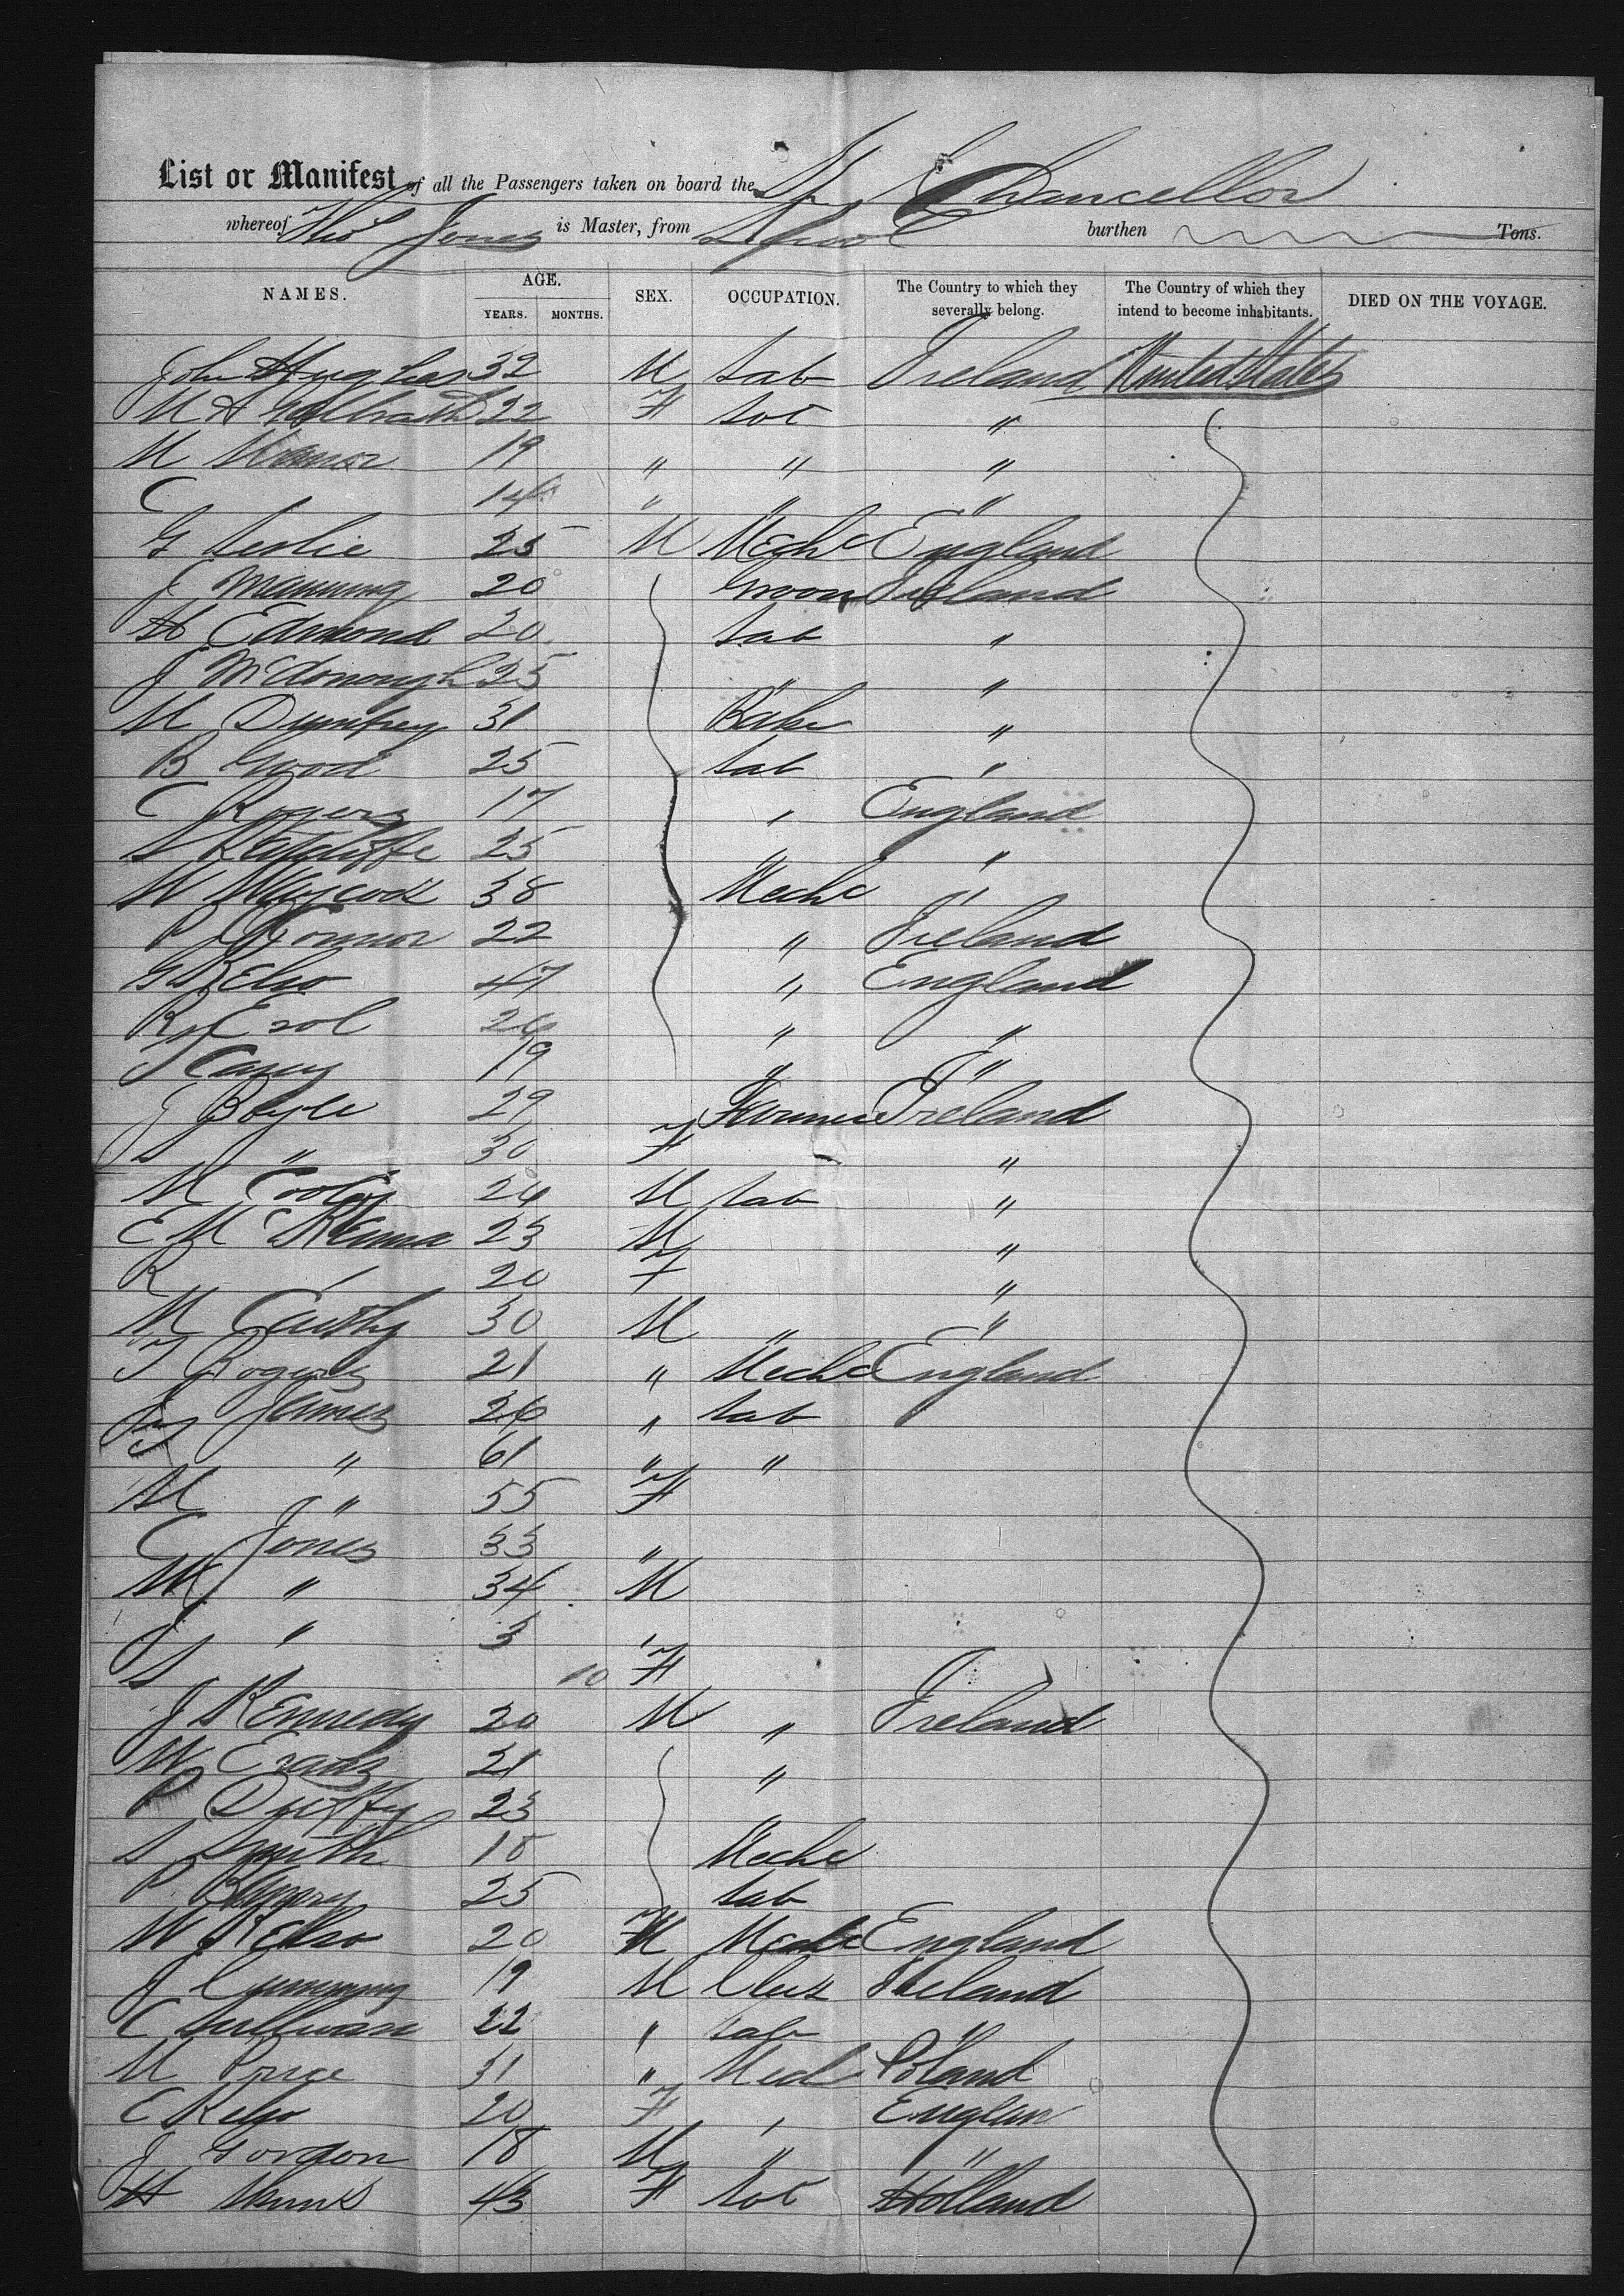 List or Manifest of all the Passengers taken on board the Chancellor
whereof Thos Jones is Master, from Lpool burthen Tons.
NAMES. AGE. SEX. OCCUPATION. The Country to which they severally belong. The Country of which they intend to become inhabitants. DIED ON THE VOYAGE.
YEARS. MONTHS.
John Hughes 32 M Lab Ireland United States
M A Galbraith 22 F "
M 19 " " "
C 14 " " "
G Leslie 25 M Mechc England
J Manning 20 Groom Ireland
H Edmond 20 Lab "
J McDonough 25 " "
M Dumfrey 31 Baker "
B Wood 25 Lab "
C Rogers 17 " England
S Ratcliffe 25 " "
W 38 Mechc "
P O'Connor 22 " Ireland
G Kelso 47 " England
R 26 " "
J Casey 19 " "
J Boyle 29 Farmer Ireland
S " 30 F "
M Cooley 24 M Lab "
E McKenna 23 M "
R " 20 F "
M Carthy 30 M " "
T Rogers 21 " Mechc England
Jas James 26 " Lab
T " 61 " "
M " 55 F
C Jones 33 "
W " 34 M
J " 3 "
S 10 F
J Kennedy 20 M " Ireland
W Evans 21 "
P Duffy 23
S Smith 18 Mechc
P 25 Lab
W Kelso 20 Mechc England
J Cumming 19 M Clerk Ireland
C Sullivan 22 " Lab "
M 31 " Mech Poland
C Kelso 20 F " Englan
J Gordon 18 M " "
H 43 F Holland